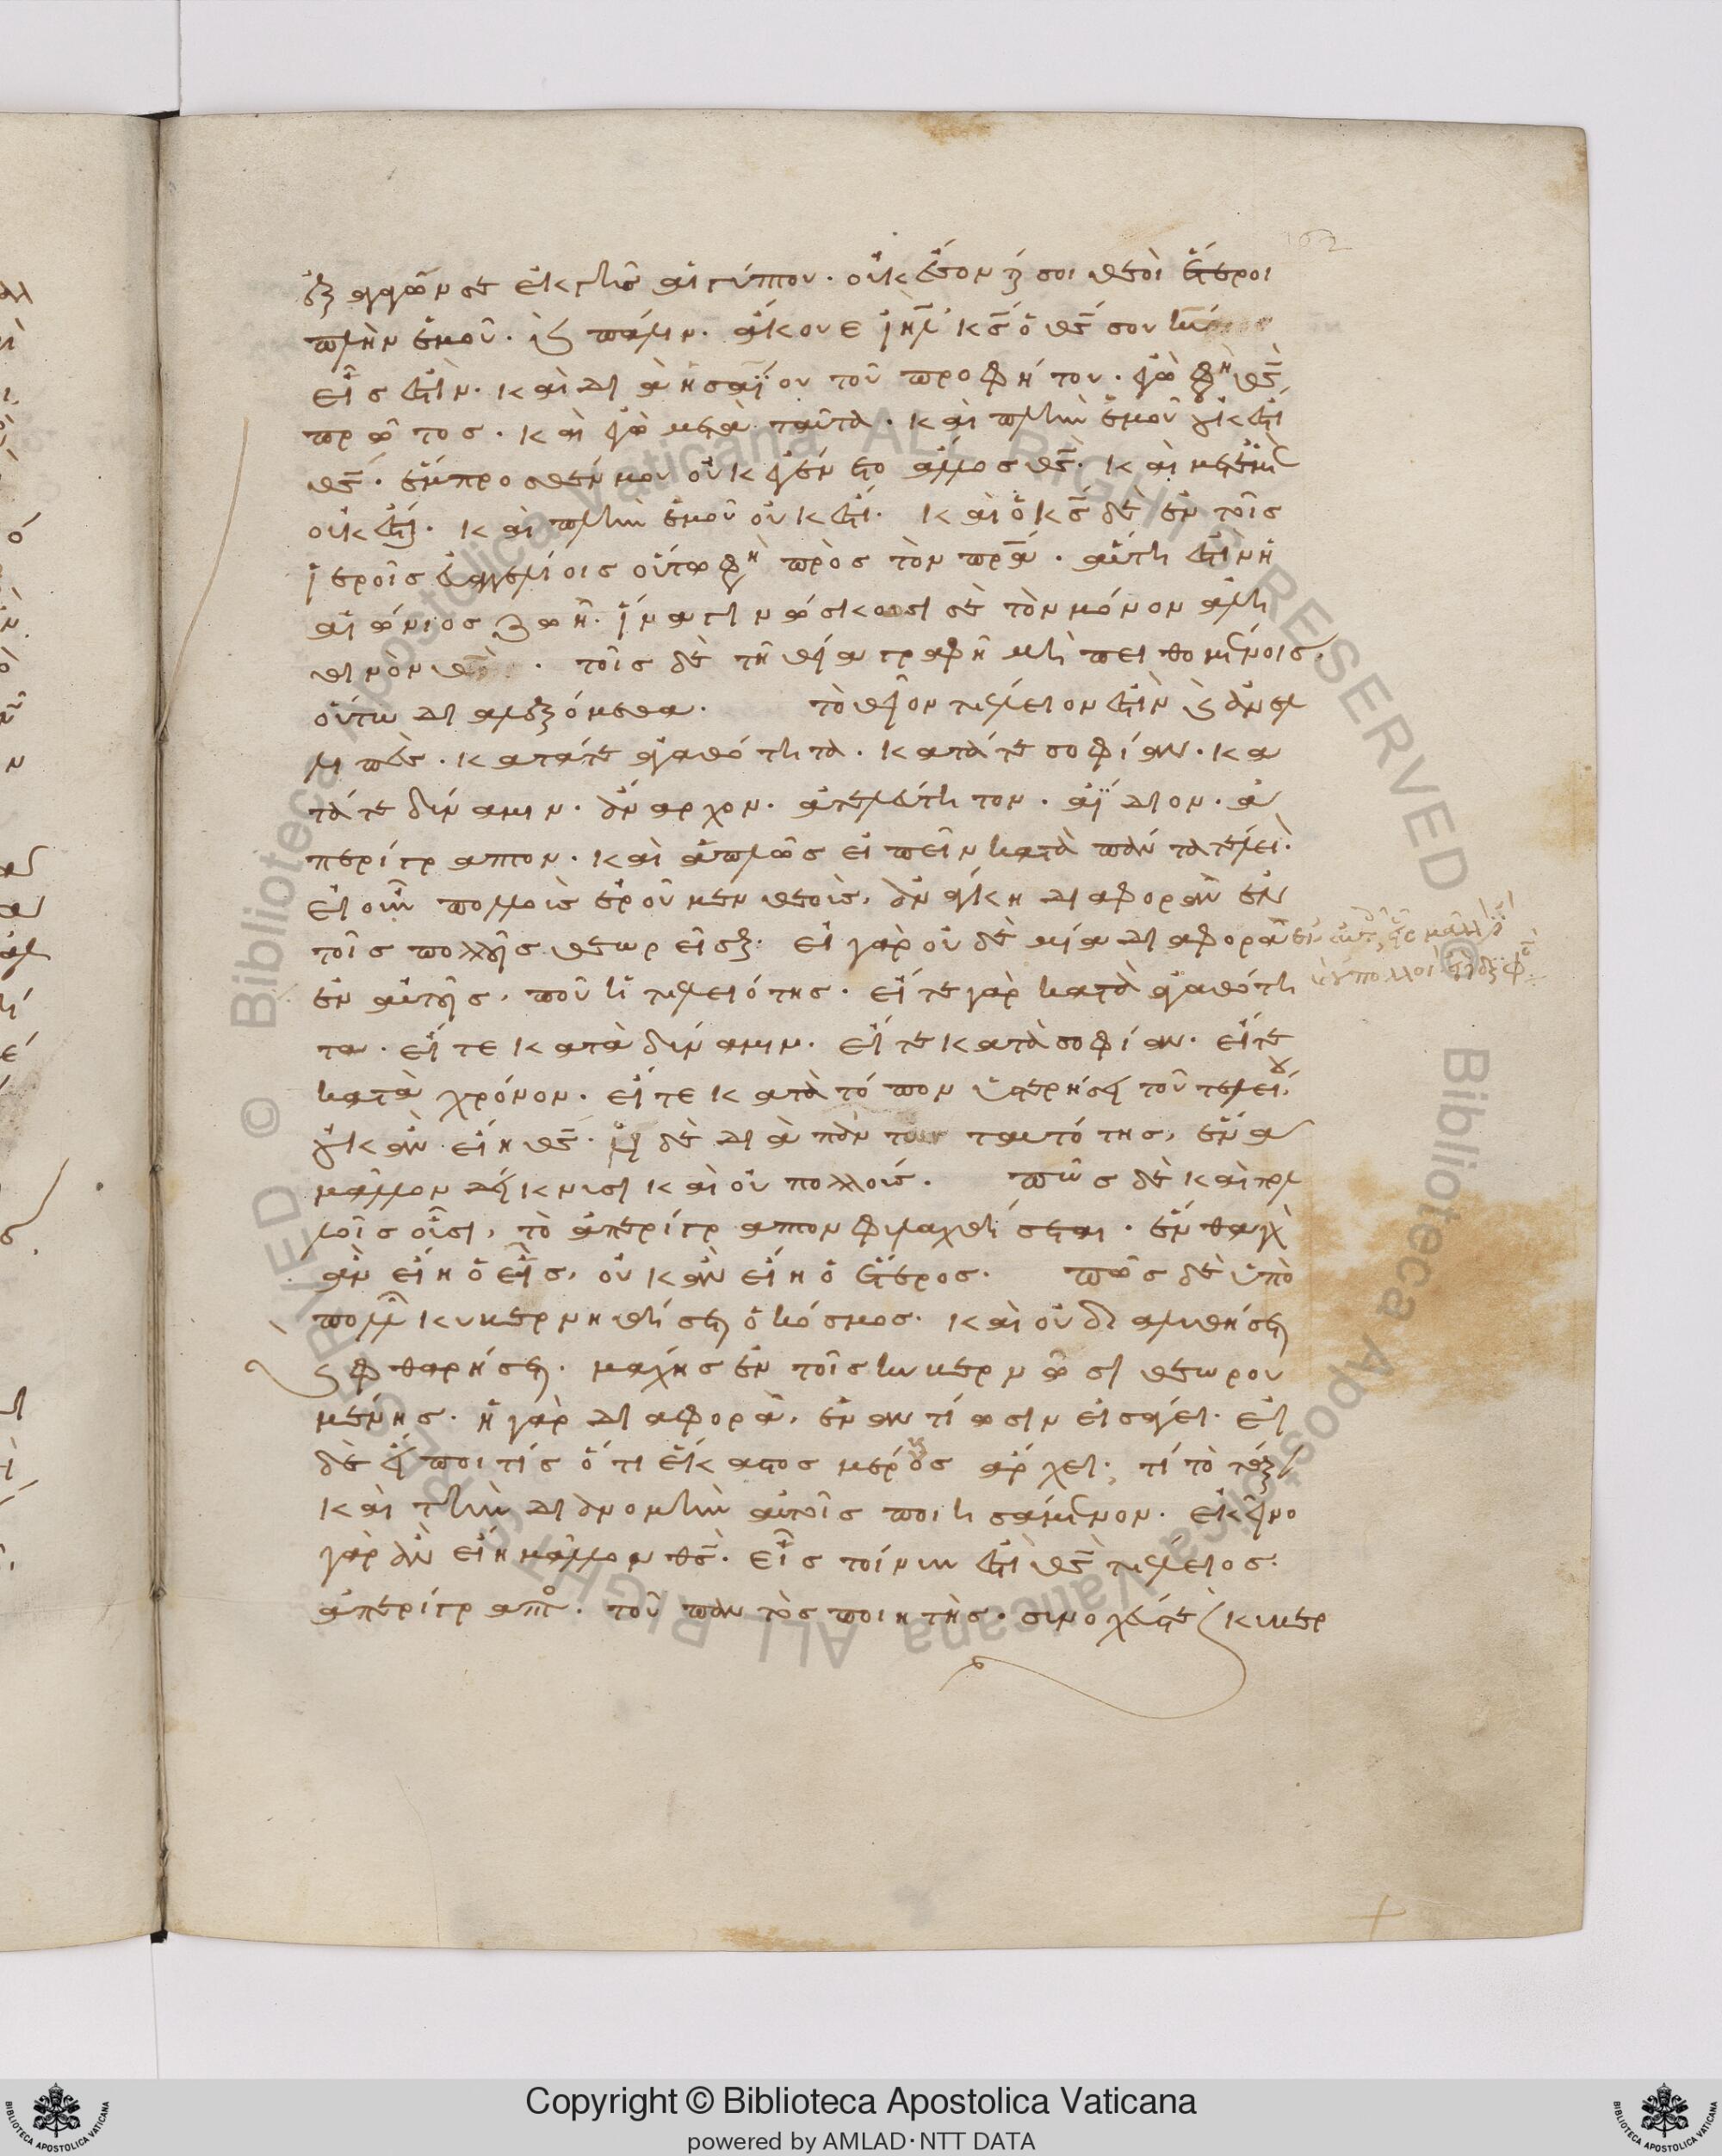 ἐξαγαγών σε ἐκ γῆς αἰγύπτου. οὐκ ἔσονταί σοι θεοὶ ἕτεροι
πλὴν ἐμοῦ. καὶ πάλιν. ἄκουε ἰηλ κς ὁ θς σου κς
εἷς ἐστὶν. καὶ διὰ ἡσαΐου τοῦ προφήτου. ἐγὼ φη θς
πρῶτος. καὶ ἐγὼ μετὰ ταῦτα. καὶ πλὴν ἐμοῦ οὐκ ἔστι
θς. ἔμπροσθέν μου οὐκ ἐγένετο ἄλλος θς. καὶ μετ' ἐμὲ
οὐκ ἔσται. καὶ πλὴν ἐμοῦ οὐκ ἔστι. καὶ ὁ κς δὲ ἐν τοῖς
ἱεροῖς εὐαγγελίοις οὕτω φη πρὸς τὸν πρα. αὕτη ἐστὶν ἡ
αἰώνιος ζωὴ. ἵνα γινώσκουσι σὲ τὸν μόνον ἀλη
θινὸν θν. τοῖς δὲ τῆ θεία γραφῆ μὴ πειθομένοις,
οὕτω διαλεξόμεθα. τὸ θεῖον τέλειον ἐστὶν καὶ ἀνελ
λιπὲς. κατά τε ἀγαθότητα. κατά τε σοφίαν. κα
τά τε δύναμιν. ἄναρχον. ἀτελεύτητον. ἀΐδιον. ἀ
περίγραπτον. καὶ ἁπλῶς εἰπεῖν κατὰ πάντα τέλει.
εἰ οὖν πολλοὺς ἐροῦμεν θεοὺς, ἀνάγκη διαφορὰν ἐν
τοῖς πολλοῖς θεωρεῖσθαι. εἰ γὰρ οὐδὲ μία διαφορὰ
ἐν αὐτοῖς, ποῦ ἡ τελειότης. εἴτε γὰρ κατὰ ἀγαθότη
τα. εἴ τε κατὰ δύναμιν. εἴ τε κατὰ σοφίαν. εἴτε
κατὰ χρόνον. εἴ τε κατὰ τόπον ὑστερήσει τοῦ τελείου,
οὐκ ἂν εἴη θς. ἡ δὲ διὰ πάντων ταυτότης, ἕνα
μᾶλλον δείκνυσι καὶ οὐ πολλούς. πῶς δὲ καὶ πολ
λοῖς οὖσι, τὸ ἀπερίγραπτον φυλαχθήσεται. ἔνθα γὰρ
ἂν εἴη ὁ εἷς, οὐκ ἂν εἴη ὁ ἕτερος. πῶς δὲ ὑπὸ
πολλῶν κυβερνηθήσεται ὁ κόσμος. καὶ οὐ διαλυθήσεται
καὶ φθαρήσεται. μάχης ἐν τοῖς κυβερνῶσι θεωρου
μένης. ἡ γὰρ διαφορὰ, ἐναντίωσιν εἰσάγει. εἰ
δὲ εἴποι τίς ὅτι ἕκαστος μέρους ἄρχει. τί τὸ τάξαν
καὶ τὴν διανομὴν αὐτοῖς ποιησάμενον. ἐκεῖνο
γὰρ ἂν εἴη μᾶλλον θς. εἷς τοίνυν ἐστὶ θς τέλειος.
ἀπερίγραπτος. τοῦ παντὸς ποιητὴς. συνοχεύς τε καὶ κυβερ
Copyright © Biblioteca Apostolica Vaticana
powered by AMLAD·NTT DATA